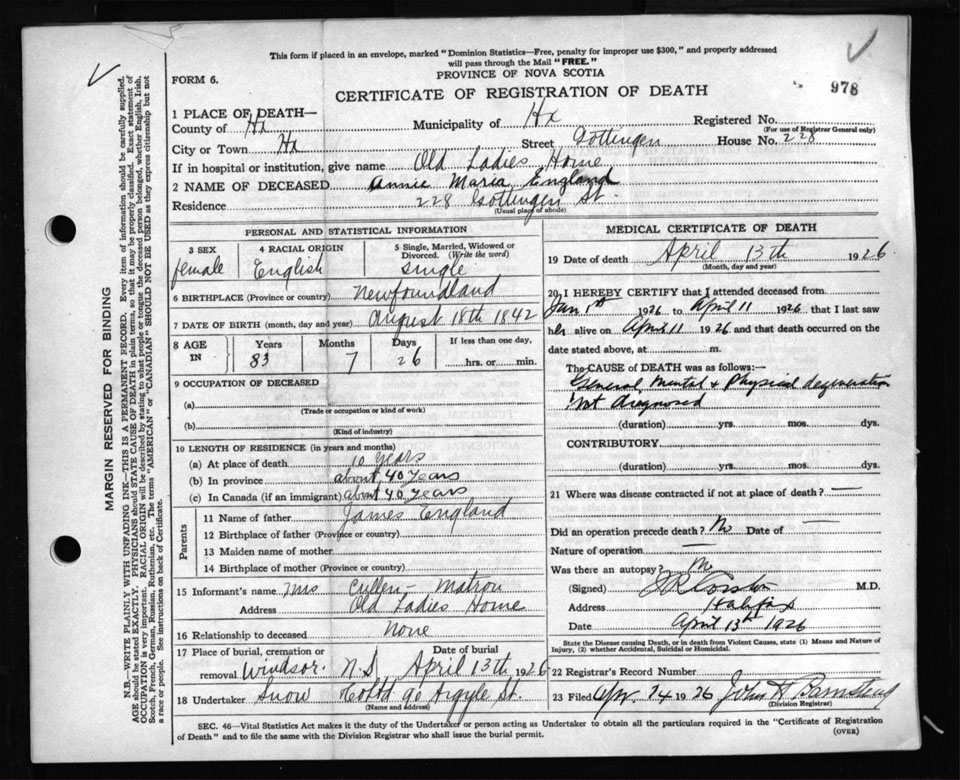 This form if placed in an envelope, marked "Dominion Statistics—Free, penalty for improper use $300," and properly addressed
will pass through the Mail "FREE."
PROVINCE OF NOVA SCOTIA
FORM 6.
978
CERTIFICATE OF REGISTRATION OF DEATH
1 PLACE OF DEATH—
County of Hx Municipality of Hx Registered No.
(For use of Registrar General only)
City or Town Hx Street Gottingen House No. 228
If in hospital or institution, give name Old Ladies Home
2 NAME OF DECEASED Annie Maria England
Residence 228 Gottingen St.
(Usual place of abode)
PERSONAL AND STATISTICAL INFORMATION
3 SEX 4 RACIAL ORIGIN 5 Single, Married, Widowed or
Divorced. (Write the word)
female English single
6 BIRTHPLACE (Province or country) Newfoundland
7 DATE OF BIRTH (month, day and year) August 18th 1842
8 AGE IN Years Months Days If less than one day,
83 7 26 hrs. or min.
9 OCCUPATION OF DECEASED
(a)
(Trade or occupation or kind of work)
(b)
(Kind of industry)
10 LENGTH OF RESIDENCE (in years and months)
(a) At place of death 10 years
(b) In province about 40 years
(c) In Canada (if an immigrant) about 40 years
Parents
11 Name of father James England
12 Birthplace of father (Province or country)
13 Maiden name of mother
14 Birthplace of mother (Province or country)
15 Informant's name Mrs Cullen - Matron
Address Old Ladies Home
16 Relationship to deceased None
17 Place of burial, cremation or Date of burial
removal Windsor N.S April 13th 1926
18 Undertaker Snow 90 Argyle St.
(Name and address)
MEDICAL CERTIFICATE OF DEATH
19 Date of death April 13th 1926
(Month, day and year)
20 I HEREBY CERTIFY that I attended deceased from
Jan 1st 1926 to April 11 1926 that I last saw
her alive on April 11 1926 and that death occurred on the
date stated above, at m.
The CAUSE OF DEATH was as follows:—
General, Mental + Physical degeneration
Not diagnosed
(duration) yrs. mos. dys.
CONTRIBUTORY
(duration) yrs. mos. dys.
21 Where was disease contracted if not at place of death? —
Did an operation precede death? No Date of —
Nature of operation —
Was there an autopsy? No
(Signed) M.D.
Address Halifax
Date April 13th 1926
State the Disease causing Death, or in death from Violent Causes, state (1) Means and Nature of
Injury, (2) whether Accidental, Suicidal or Homicidal.
22 Registrar's Record Number
23 Filed Apr. 24 1926 John H Barnstead
(Division Registrar)
SEC. 46—Vital Statistics Act makes it the duty of the Undertaker or person acting as Undertaker to obtain all the particulars required in the "Certificate of Registration
of Death" and to file the same with the Division Registrar who shall issue the burial permit.
(OVER)
MARGIN RESERVED FOR BINDING
N.B.—WRITE PLAINLY WITH UNFADING INK—THIS IS A PERMANENT RECORD. Every item of information should be carefully supplied.
AGE should be stated EXACTLY. PHYSICIANS should STATE CAUSE OF DEATH in plain terms, so that it may be properly classified. Exact statement of
OCCUPATION is very important. RACIAL ORIGIN will be described by stating to what people or tongue the deceased person belonged, whether English, Irish,
Scotch, French, German, Russian, Ruthenian, etc. The terms "AMERICAN" or "CANADIAN" SHOULD NOT BE USED as they express citizenship but not
a race or people. See instructions on back of Certificate.